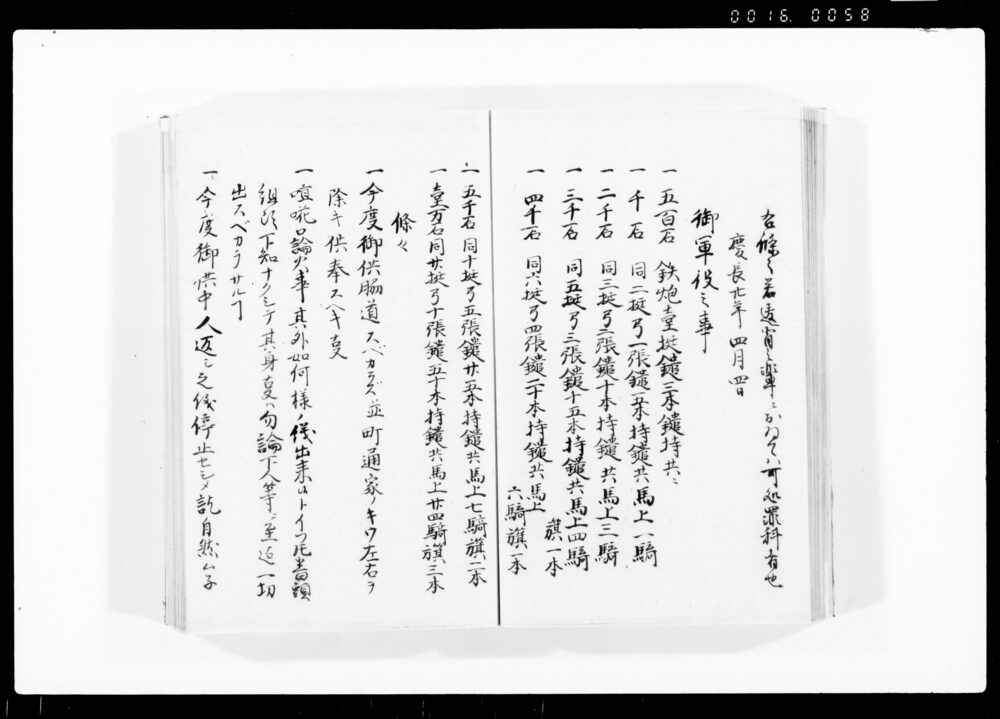 0016. 0058
右條々若違背之輩ニおゐてハ可処罪科者也
慶長廿年四月四日
御軍役之事
一 五百石 鉄炮壹挺鑓三本鑓持共ニ
一 千石 同二挺弓一張鑓五本持鑓共馬上一騎
一 二千石 同三挺弓二張鑓十本持鑓共馬上三騎
一 三千石 同五挺弓三張鑓十五本持鑓共馬上四騎
旗一本
一 四千石 同六挺弓四張鑓二十本持鑓共馬上
六騎旗一本
一 五千石 同十挺弓五張鑓廿五本持鑓共馬上七騎旗二本
一 壹万石同廿挺弓十張鑓五十本持鑓共馬上廿四騎旗三本
條々
一 今度御供脇道スベカラズ並町通家ノキワ左右ヲ
除キ供奉スヘキ事
一 喧嘩口論火事其外如何様ノ儀出来ストイフ共当頭
組頭下知ナクシテ其身事ハ勿論下人等ニ至迄一切
出スベカラサルヿ
一 今度御供中人返シ之儀停止セシメ訖自然ム子